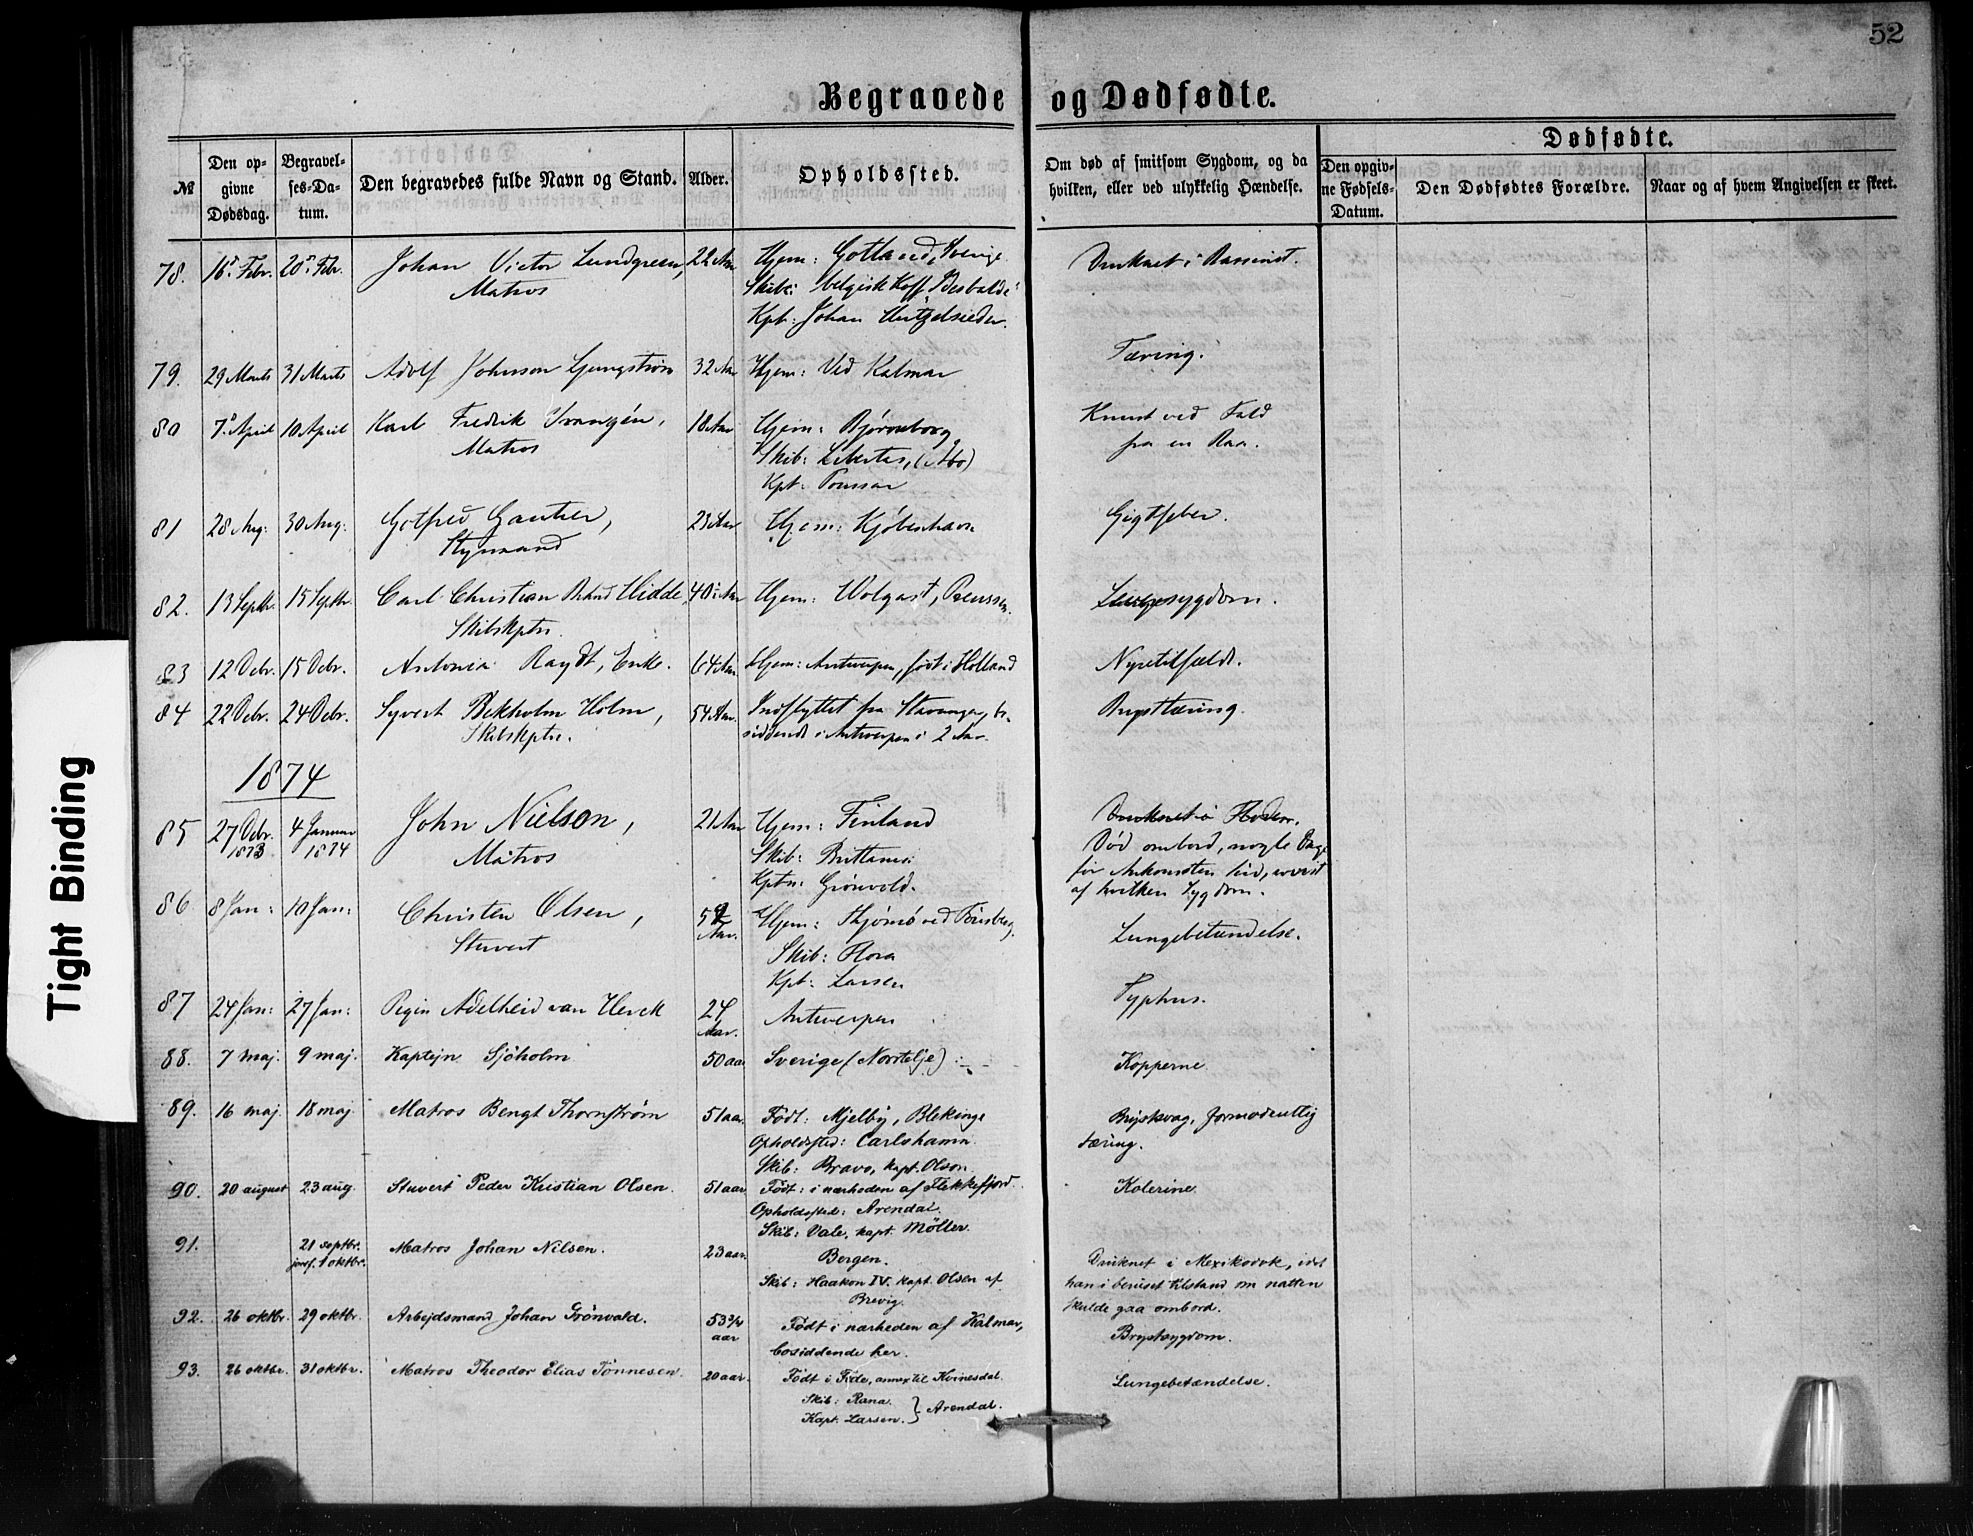 52
Begravede og Dødfødte.
№
Den opgivne Dødsdag.
Begravelses-Datum.
Den begravedes fulde Navn og Stand.
Alder.
Opholdssted.
Om død af smitsom Sygdom, og da hvilken, eller ved ulykkelig Hændelse.
Dødfødte.
Den opgivne Fødsels-Datum.
Den Dødfødtes Forældre.
Naar og af hvem Angivelsen er skeet.
78. 16. Febr. 20. Febr. Johan Victor Lundgreen, 22 Aar Hjem: Gotland, Sverige. Druknet i Bassinet.
Matros Skib: belgisk Koff
Kpt: Johan
79. 29 Marts 31 Marts Adolf Johnson Ljungstrøm 32 Aar Hjem: Ved Kalmar Tæring.
80 7. April 10 April Karl Fredrik 18 Aar Hjem: Bjørneborg Knust ved Fald
Matros Skib: Libertas, (Åbo) fra en Raa.
Kpt:
81 28 Aug: 30 Aug: Gotfred Gautier, 23 Aar Hjem: Kjøbenhavn Gigtfeber.
Styrmand
82. 13 Septbr. 15 Septbr. Carl Christian Hidde, 40 Aar Hjem: Wolgast, Preussen. Lungesygdom.
Skibskptn.
83 12 Debr. 15 Debr. Antonia Raydt, Enke. 64 Aar. Hjem: Antwerpen, født i Holland Nyretilfælde.
84 22 Debr. 24 Debr. Syvert Holm, 54 Aar. Indflyttet fra Stavanger, be- Brysttæring.
Skibskptn. siddende i Antwerpen i 2 Aar.
1874
85 27 Debr. 1873 4 Januar 1874 John Nielson, 21 Aar Hjem: Finland Druknet i Floden.
Matros Skib: Brittania Død ombord, nogle Dage
Kptn: Grönvold. før Ankomsten hid, uvist
af hvilken Sygdom.
86 8 Jan: 10 Jan: Christen Olsen, Aar. Hjem: Tjømø ved Tønsberg. Lungebetændelse.
Stuert Skib: Flora
Kpt: Larsen
87 24 Jan: 27 Jan: Regin Adelheid van Herck 24 Aar. Antwerpen Typhus.
88. 7 maj. 9 maj. Kaptejn Sjöholm 50 aar Sverige (Norrtelje) Kopperne
89. 16 maj. 18 maj. Matros Bengt Thornström 51 aar. Født: Mjelby, Blekinge Brystsvag, formodentlig
Opholdssted: Carlshamn. tæring.
Skib: Bravo, kapt. Olson.
90. 20 august 23 aug. Stuvert Peder Kristian Olsen. 51 aar Født: i nærheden af Flekkefjord. Kolerine
Opholdssted: Arendal.
Skib: Vale, kapt. Möller.
91. 21 septbr. jvnf. 1 oktbr. Matros Johan Nilsen. 23 aar. Bergen. Druknet i Mexikodok, idet
Skib: Haakon IV. kapt. Olsen af han i beruset tilstand om natten
Brevig. skulde gaa ombord.
92. 26 oktbr. 29 oktbr. Arbejdsmand Johan Grönvald. 53 3/4 aar Født i nærheden af Kalmar, Brystsygdom.
bosiddende her.
93. 26 oktbr. 31 oktbr. Matros Theodor Elias Tönnesen. 20 aar. Født i Fede, annex til Kvinesdal. Lungebetændelse.
Skib: Rana.
Kapt. Larsen. } Arendal.
Tight Binding